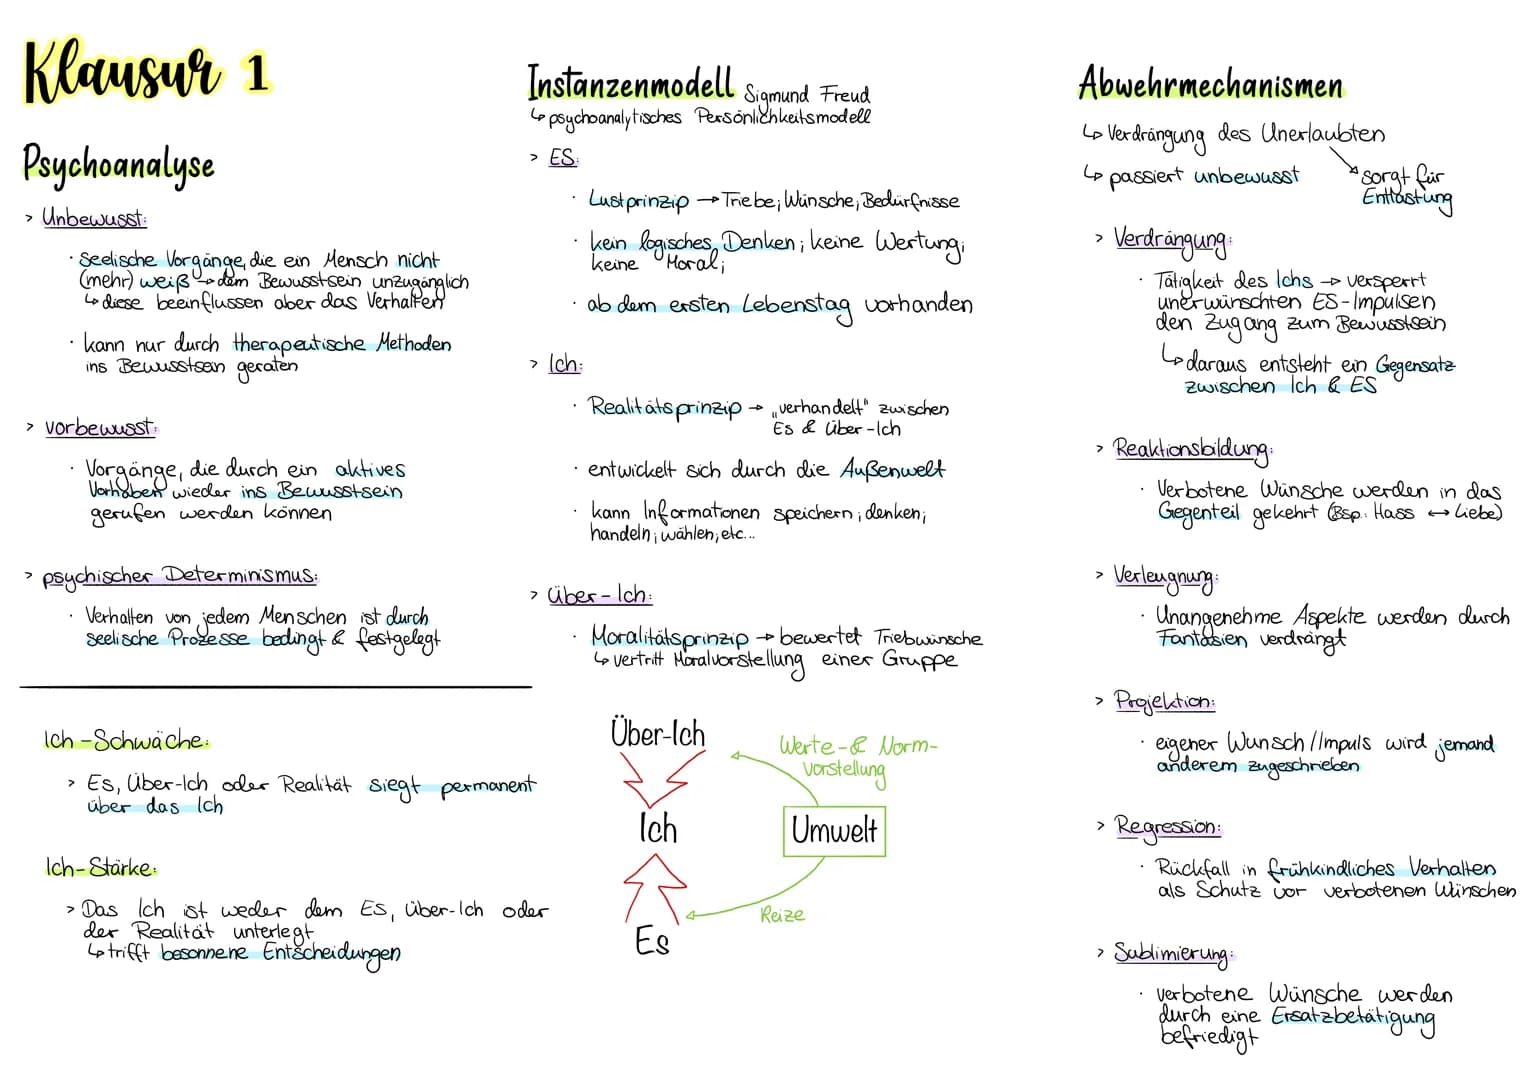 Klausur 1
Psychoanalyse
> Unbewusst:
· seelische Vorgänge, die ein Mensch nicht
(mehr) weiß → dem Bewusstsein unzugänglich
↳ diese beeinflussen aber das Verhalten
· kann nur durch therapeutische Methoden
ins Bewusstsein geraten
> vorbewusst:
· Vorgänge, die durch ein aktives
Vorhaben wieder ins Bewusstsein
gerufen werden können
> psychischer Determinismus:
· Verhalten von jedem Menschen ist durch
seelische Prozesse bedingt & festgelegt
Ich-Schwäche:
> Es, Über-Ich oder Realität siegt permanent
über das Ich
Ich-Stärke:
> Das Ich ist weder dem Es, Über-Ich oder
der Realität unterlegt
↳ trifft besonnene Entscheidungen
Instanzenmodell Sigmund Freud
↳ psychoanalytisches Persönlichkeitsmodell
> ES:
· Lustprinzip → Triebe; Wünsche; Bedürfnisse
· kein logisches Denken; keine Wertung;
keine Moral;
· ab dem ersten Lebenstag vorhanden
> Ich:
· Realitätsprinzip → „verhandelt" zwischen
Es & Über-Ich
· entwickelt sich durch die Außenwelt
· kann Informationen speichern; denken;
handeln; wählen; etc...
> Über-Ich:
· Moralitätsprinzip → bewertet Triebwünsche
↳ vertritt Moralvorstellung einer Gruppe
Über-Ich
Werte-& Norm-
vorstellung
Ich
Umwelt
Reize
Es
Abwehrmechanismen
↳ Verdrängung des Unerlaubten
↳ passiert unbewusst
sorgt für
Entlastung
> Verdrängung:
· Tätigkeit des Ichs → versperrt
unerwünschten ES-Impulsen
den Zugang zum Bewusstsein
↳ daraus entsteht ein Gegensatz
zwischen Ich & ES
> Reaktionsbildung:
· Verbotene Wünsche werden in das
Gegenteil gekehrt (Bsp.: Hass ↔ Liebe)
> Verleugnung:
· Unangenehme Aspekte werden durch
Fantasien verdrängt
> Projektion:
· eigener Wunsch/Impuls wird jemand
anderem zugeschrieben
> Regression:
· Rückfall in frühkindliches Verhalten
als Schutz vor verbotenen Wünschen
> Sublimierung:
· verbotene Wünsche werden
durch eine Ersatzbetätigung
befriedigt